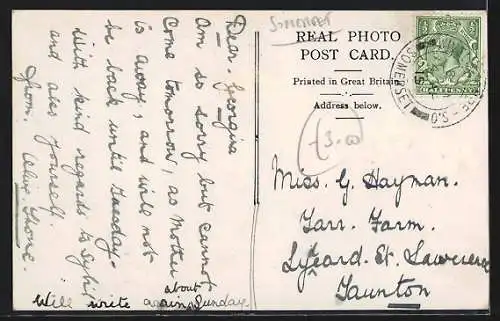 Dear Georgina
Am so sorry but cannot
come tomorrow, as Mother
is away, and will not
be back until Tuesday.
With kind regards to
and also yourself.
from
Will write again about Sunday.
SOMERSET
REAL PHOTO
POST CARD.
Printed in Great Britain
Address below.
3.00
SOMERSET
S.O.
HALFPENNY
Miss. G. Hayman.
Tarr. Farm.
Lydeard. St. Lawrence
Taunton